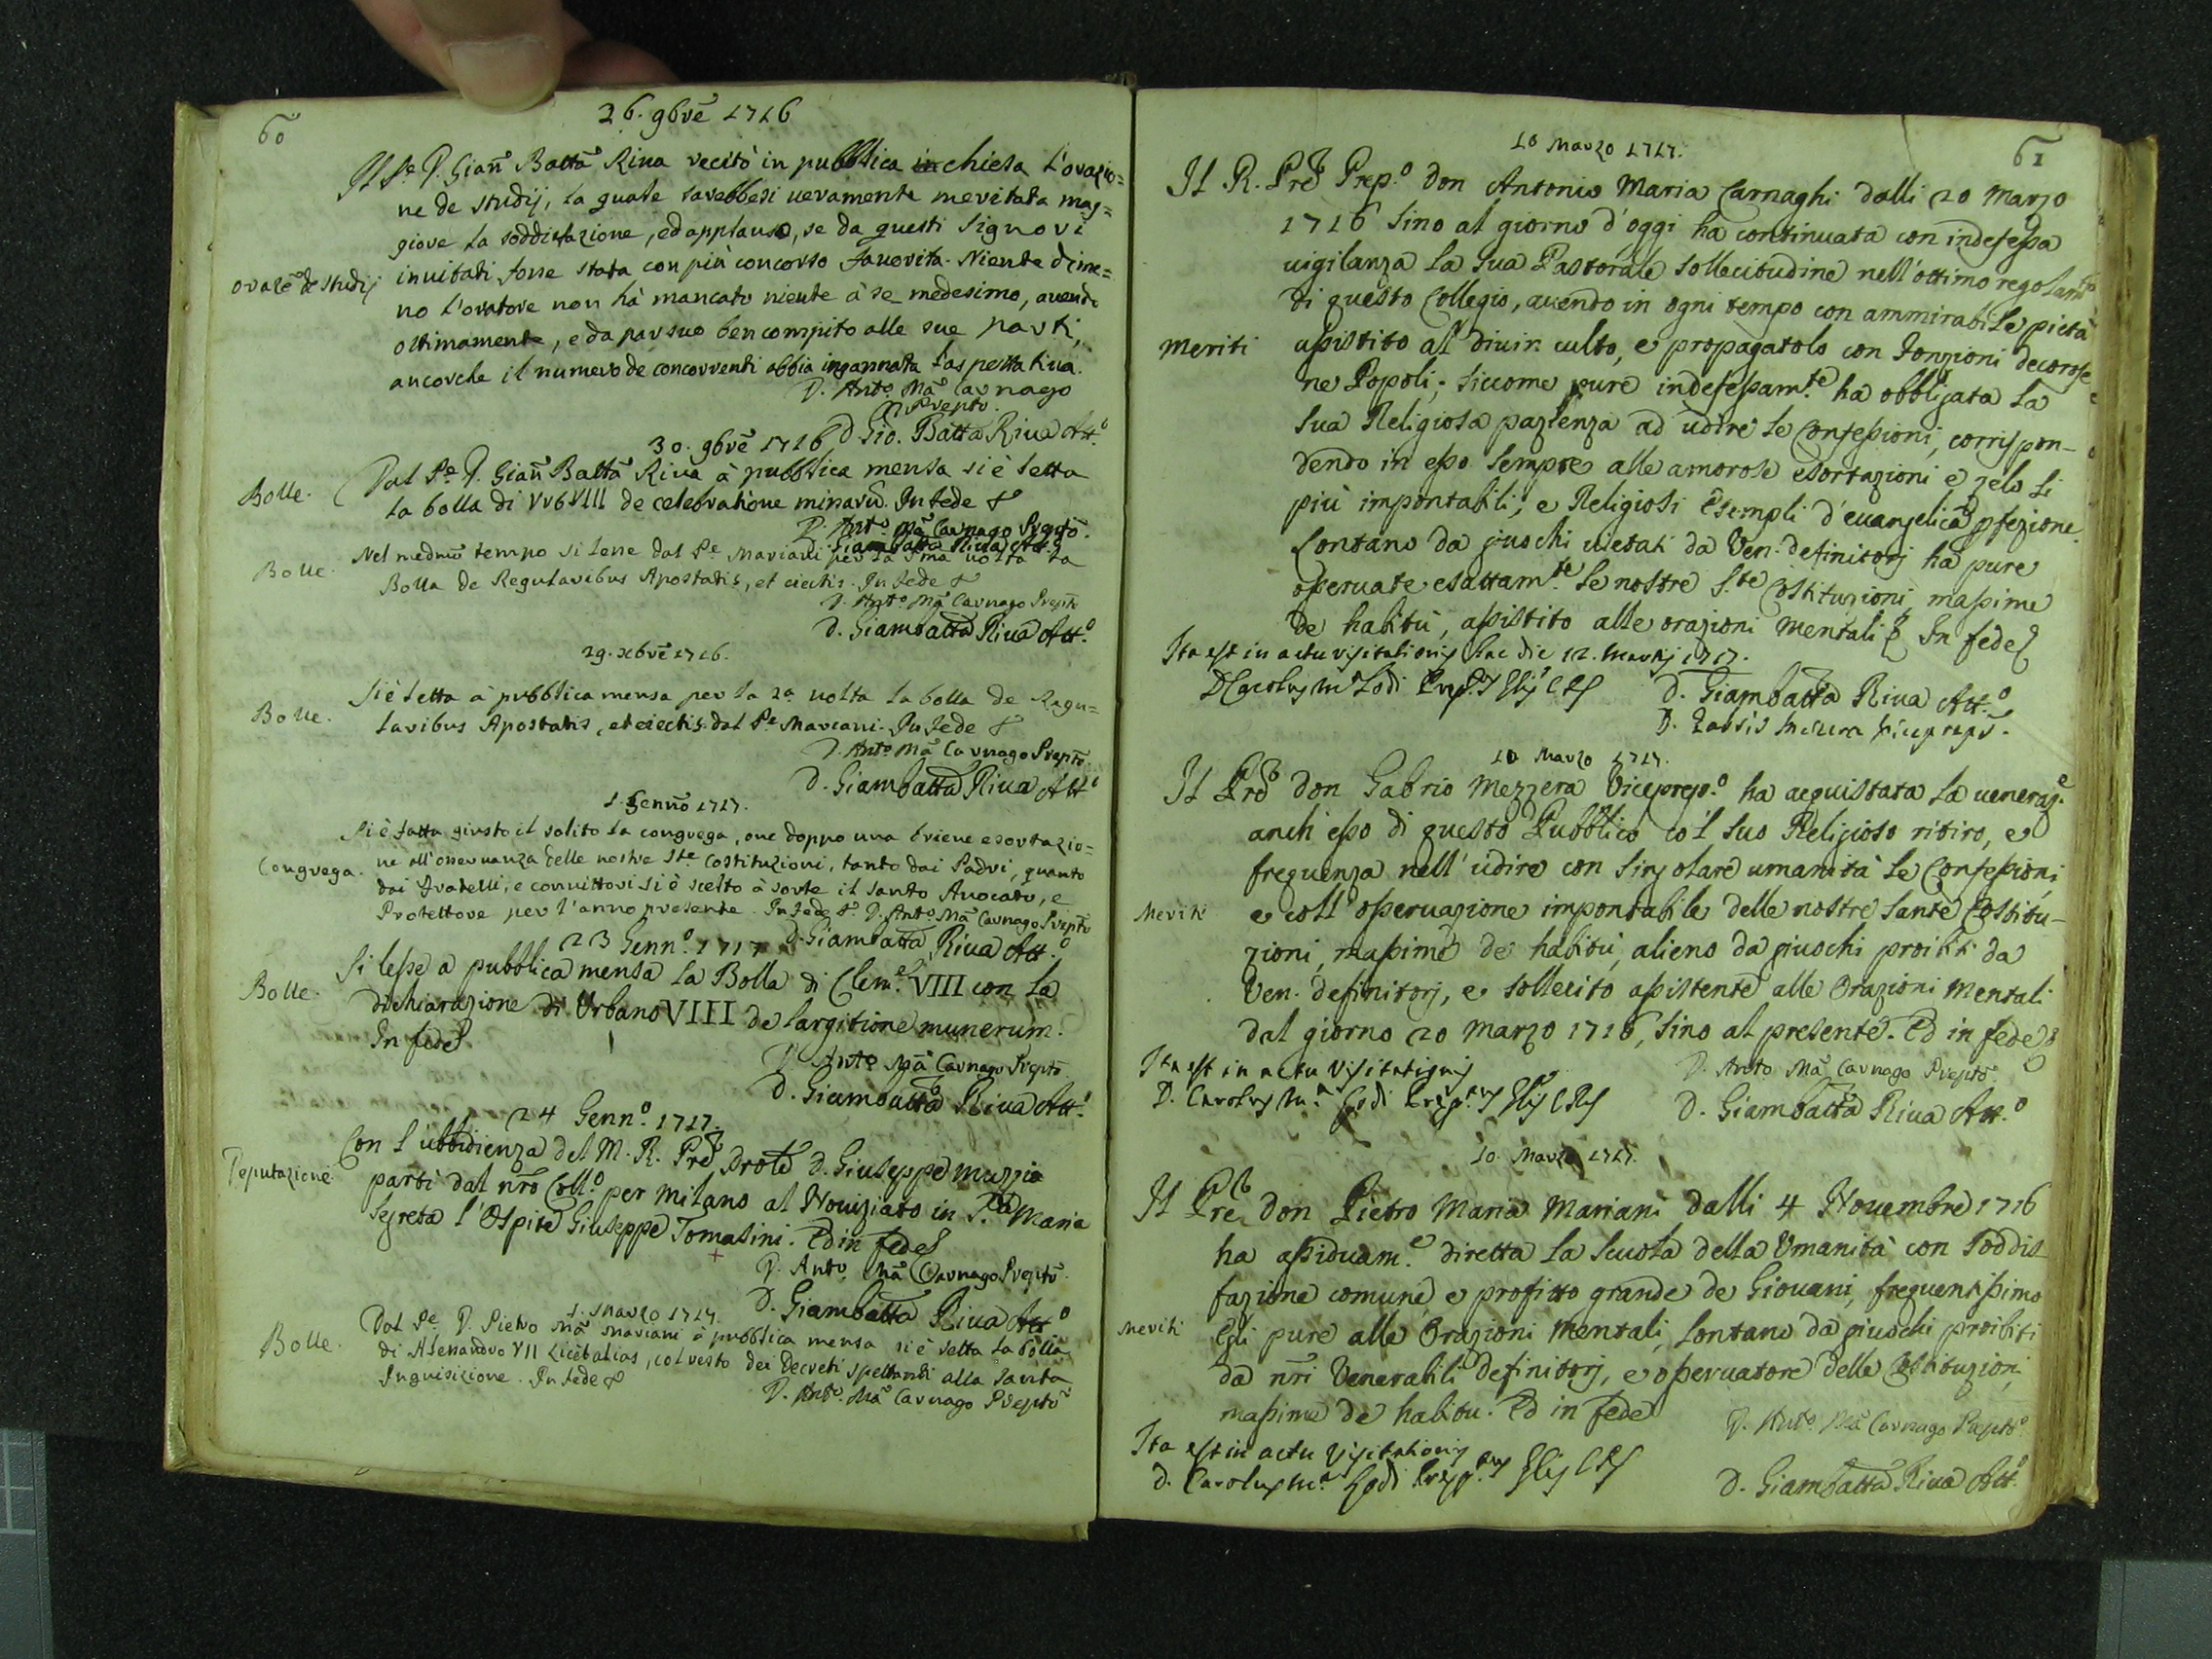 60
26. 9bre 1716
Il Pe D. Giañ Battã Riua recitò in pubblica chiesa l'orazio=
ne de studij, la quale sarebbesi ueramente meritata mag=
giore la soddisfazione, ed applauso, se da questi Signori
orazẽ de studij inuitati fosse stata con più concorso fauorita. Niente dime=
no l'oratore non hà mancato niente à se medesimo, auendo
ottimamente, e da par suo ben compito alle sue parti,
ancorche il numero de concorrenti abbia ingannata l'aspettatiua.
D. Anto. Mã Carnago
Prepto.
D Gio. Batta Riua Att.o
30. 9bre 1716
Bolle. Dal Pe D. Giañ Battã Riua à pubblica mensa si è letta
la bolla di Vrb VIII de celebratione missarũ. In fede &
D. Anto. Mã Carnago Prepto.
D. Giambatta Riua Att.
Bolle. Nel medmo tempo si lesse dal Pe Mariani per la pma uolta la
Bolla de Regularibus Apostatis, et eiectis. In fede &
D. Anto. Mã Carnago Prepto
D. Giambatta Riua Att.o
29. xbre 1716.
Bolle. Si è letta à pubblica mensa per la 2a uolta la bolla de Regu=
laribus Apostatis, et eiectis. dal Pe Mariani. In fede &
D. Anto Mã Carnago Prepto.
D. Giambatta Riua Att.o
1. Genño 1717.
Si è fatta giusto il solito la congrega, oue doppo una briene esortazio=
Congrega. ne all'osseruanza delle nostre Ste Costituzioni, tanto dai Padri, quanto
dai Fratelli, e conuittori si è scelto à sorte il Santo Auocato, e
Protettore per l'anno presente. In fede &. D. Anto. Mã Carnago Prepto
D. Giambatta Riua Att.o
23 Genn.o 1717
Bolle. Si lesse a pubblica mensa la Bolla di Clem.e VIII con la
dichiarazione di Urbano VIII de largitione munerum.
In fede
D. Anto Mã Carnago Prepto.
D. Giambatta Riua Att.o
24 Genn.o 1717.
Con l'ubbidienza del M. R. Pre Prole D. Giuseppe Muzzio
Deputazione. partì dal nro Coll.o per Milano al Nouiziato in S.ta Maria
Segreta l'Ospite Giuseppe Tomasini. Ed in fede
D. Anto. Mã Carnago Prepto.
D. Giambatta Riua Att.o
1. Marzo 1717.
Dal Pe D. Pietro Mã Mariani à pubblica mensa si è letta la bolla
Bolle. di Alessandro VII Licet alias, col resto dei Decreti spettanti alla Santa
Inquisizione. In fede &
D. Anto. Mã Carnago Prepto
61
10 Marzo 1717.
Il R. Pre Prep.o don Antonio Maria Carnaghi dalli 20 Marzo
1716 sino al giorno d'oggi ha continuata con indefessa
uigilanza la sua Pastorale sollecitudine nell'ottimo regolamto
di questo Collegio, auendo in ogni tempo con ammirabile pietà
Meriti assistito al diuin culto, e propagatolo con fonzioni decorose
ne Popoli; siccome pure indefessam.te ha obbligata la
sua Religiosa pazienza ad udire le Confessioni, corrispon-
dendo in esso sempre alle amorose esortazioni e zelo li
più impontabili, e Religiosi esempli d'euangelica pfezione.
Lontano da giuochi uietati da Ven. definitorj ha pure
osseruate esattam.te le nostre S.te Costituzioni massime
de habitu, assistito alle orazioni mentali & In fede
Ita est in actu visitationis hac die 12. Martij 1717.
D Carolus M.a Lodi Prep.
D. Giambatta Riua Att.o
D. Gabrio Mezzera Viceprepo.
10 Marzo 1717.
Il Pre don Gabrio Mezzera Viceprep.o ha acquistata la ueneraz.e
anch'esso di questo Pubblico co'l suo Religioso ritiro, e
frequenza nell'udire con singolare umanità le Confessioni
Meriti e coll'osseruazione impontabile delle nostre Sante Costitu-
zioni, massime de habitu, alieno da giuochi proibiti da
Ven. definitorj, e sollecito assistente alle Orazioni mentali
dal giorno 20 Marzo 1716, sino al presente. Ed in fede
Ita est in actu visitationis
D. Carolus M.a Lodi Prep.
D. Anto Mã Carnago Prepto.
D. Giambatta Riua Att.o
10. Marzo 1717.
Il Pre don Pietro Maria Mariani dalli 4 Nouembre 1716
ha assiduam.e diretta la Scuola della Umanità con soddis-
fazione comune, e profitto grande de Giouani, frequentissimo
Meriti Egli pure alle Orazioni mentali, lontano da giuochi proibiti
da nri Venerabili definitorj, e osseruatore delle Costituzioni
massime de habitu. Ed in fede
D. Anto Mã Carnago Prepto
Ita est in actu visitationis
D. Carolus M.a Lodi Prep.
D. Giambatta Riua Att.o